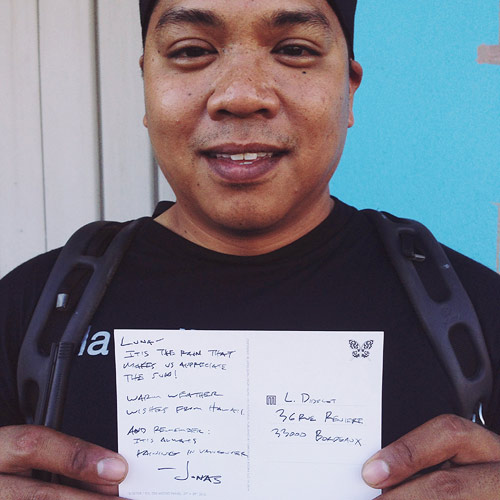 la
LUNA-
IT'S THE RAIN THAT
MAKES US APPRECIATE
THE SUN!
WARM WEATHER
WISHES FROM HAWAII.
AND REMEMBER:
IT'S ALWAYS
RAINING IN VANCOUVER
- JONAS
L.
36 RUE RIVIERE
33000 BORDEAUX